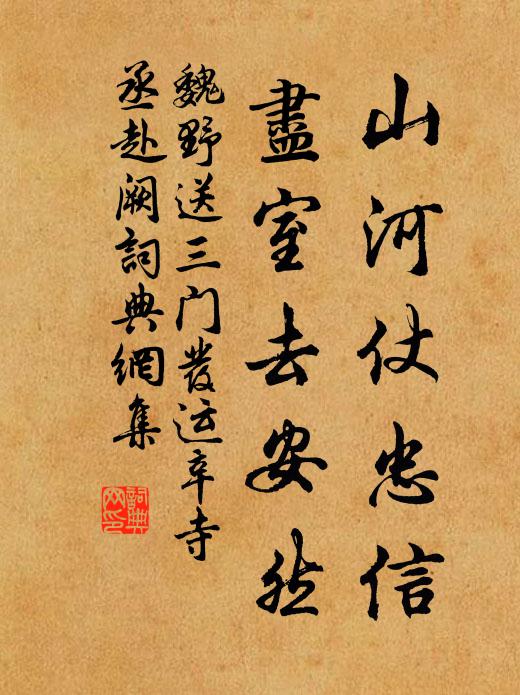 山河仗忠信
盡室去安然
魏野送三门發运辛寺
丞赴阙詞典網集
詞典
网印